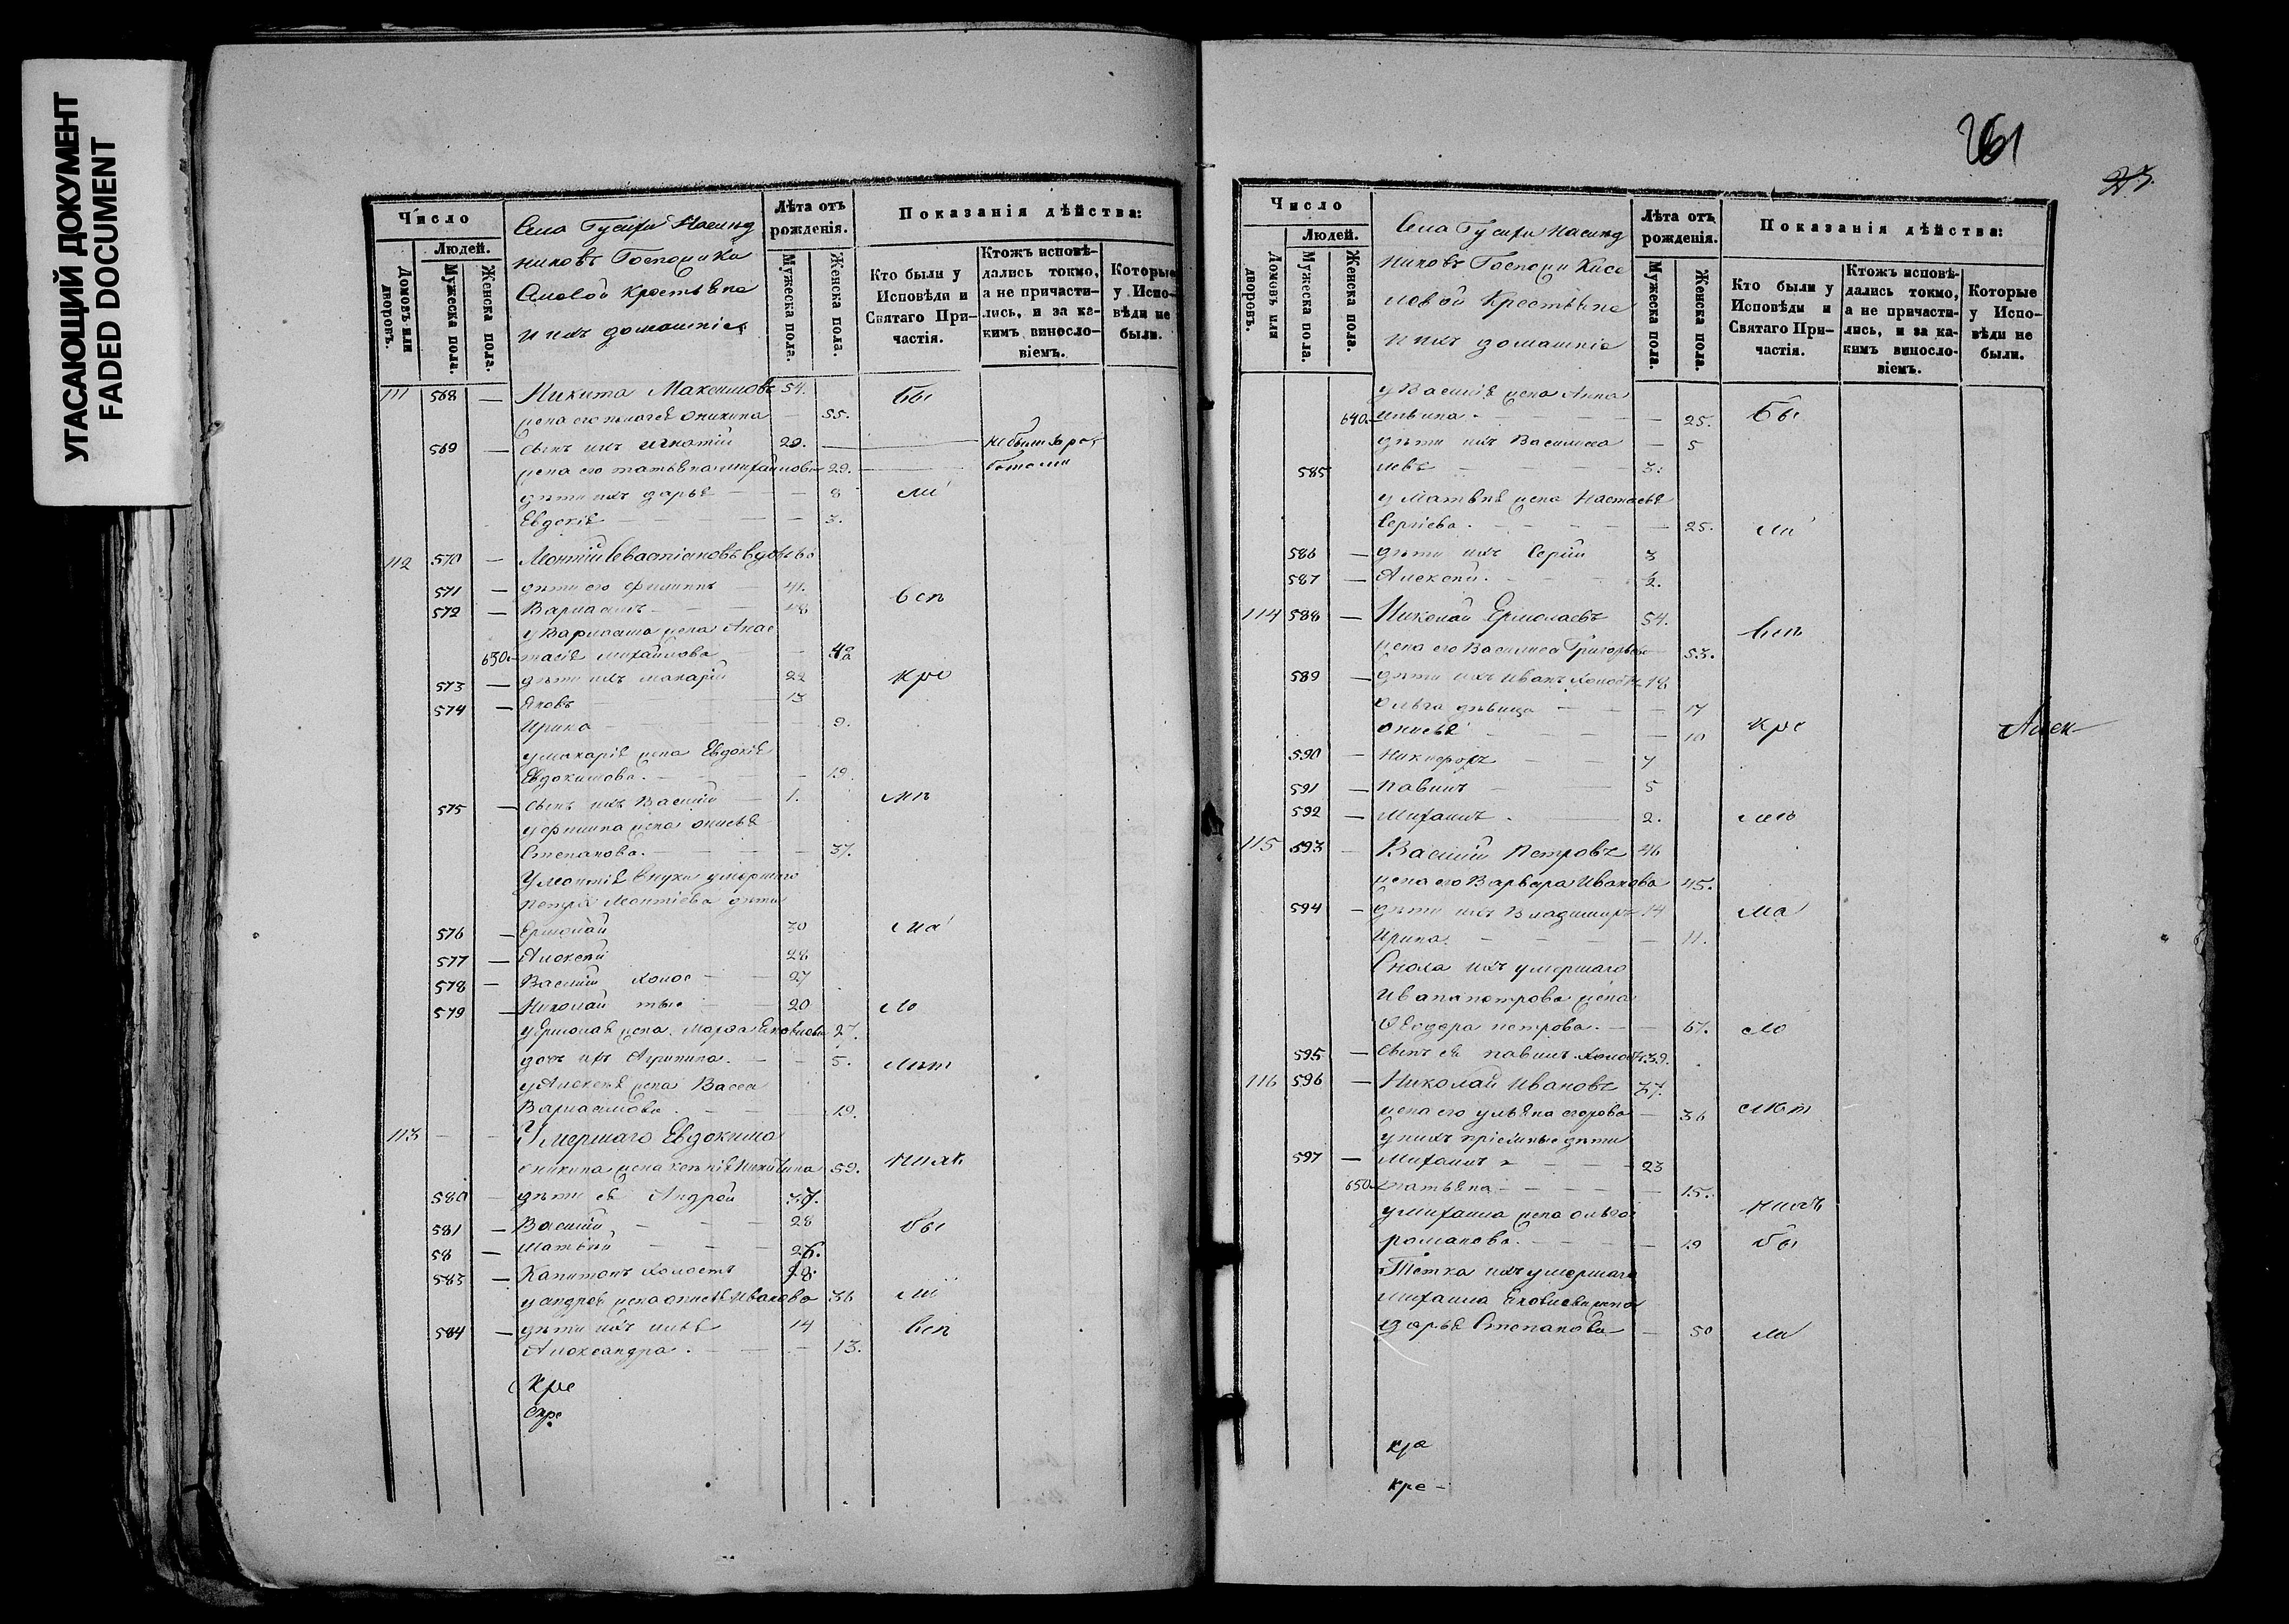 УГАСАЮЩИЙ ДОКУМЕНТ
FADED DOCUMENT
Число
Людей.
Домовъ или дворовъ.
Мужеска пола.
Женска пола.
Села Гусихи Наслѣд
никовъ Госпожи Кис
еловой Крестьяне
и ихъ домашніе
Лѣта отъ рожденія.
Мужеска пола.
Женска пола.
Показанія дѣйства:
Кто были у Исповѣди и Святаго Причастія.
Ктожъ исповѣдались токмо, а не причастились, и за какимъ винословіемъ.
Которые у Исповѣди не были.
111 568 — Никита Максимовъ 54. Бы
жена его 55.
569 — сынъ ихъ Игнатій 29.
жена его татьяна михайлова 29.
дѣти ихъ дарья — — 8 ли
Евдокія — — 3.
112 570 — Леонтій Севастіановъ вдовъ
571 — дѣти его Филиппъ — 41. всп
572 — Варламъ — 48
у Варлаама жена Анас
630. тасія михайлова — 42
573 — дѣти ихъ макарій 22 кре
574 — яковъ 13
Ирина — 9.
у макарія жена Евдокія
Евдокимова. — 19.
575 — сынъ ихъ Василій — 1.
у филипа жена анисья
Степанова. — 37.
У леонтія внуки умершаго
петра Леонтіева дѣти
576 — Ермолай 30
577 — Алексей 28
578 — Василій холос — 27
579 — Николай — 20
у Ермолая жена Марѳа Яковлева 27.
дочь ихъ Агрипина. — 5.
у Алексея жена Васса
Варлаамова. — 19.
113 — Умершаго Евдокима
аникина жена ксенія Никитина 59.
580 — дѣти ея Андрей 37.
581 — Василій — 28 бы
58 — Матвѣй — 26.
583 — Капитонъ холостъ 18.
у андрея жена анисья Иванова 36 ли
584 — дѣти ихъ илья 14 всп
Александра. — 13.
Кре
261
23.
Число
Людей.
Домовъ или дворовъ.
Мужеска пола.
Женска пола.
Села Гусихи Наслѣд
никовъ Госпожи Кисе
ловой Крестьяне
и ихъ домашніе
Лѣта отъ рожденія.
Мужеска пола.
Женска пола.
Показанія дѣйства:
Кто были у Исповѣди и Святаго Причастія.
Ктожъ исповѣдались токмо, а не причастились, и за какимъ винословіемъ.
Которые у Исповѣди не были.
у Василія жена Анна
640. ильина. — 25. Бы
дѣти ихъ Василиса — 5
585 левъ — 3.
у Матвѣя жена Настасья
Сергіева. — 25. ли
586 — дѣти ихъ Сергій 3
587 — Алексей. — 2.
114 588 — Николай Ермолаевъ 54. всп
жена его Василиса Григорьева 53.
589 — дѣти ихъ Иванъ холостъ 18
Ольга дѣвица — 17
анисья — 10 кре
Алек
590 — Никифоръ — 7
591 — павелъ — 5
592 — Михаилъ. — 2.
115 593 — Василій Петровъ 46
жена его Варвара Иванова 45.
594 — дѣти ихъ Владимиръ 14
Ирина. — 11.
Сноха ихъ умершаго
Ивана петрова жена
Ѳеодора петрова. — 67.
595 — сынъ ея павелъ холостъ 39.
116 596 — Николай Ивановъ 37.
жена его ульяна егорова — 36
У нихъ пріемные дѣти
597 — Михаилъ — 23
650. татьяна — 15.
у михаила жена ольга
романова. — 19 бы
Тетка ихъ умершаго
михаила Яковлева жена
дарья Степанова — 50 ли
кре
кре -